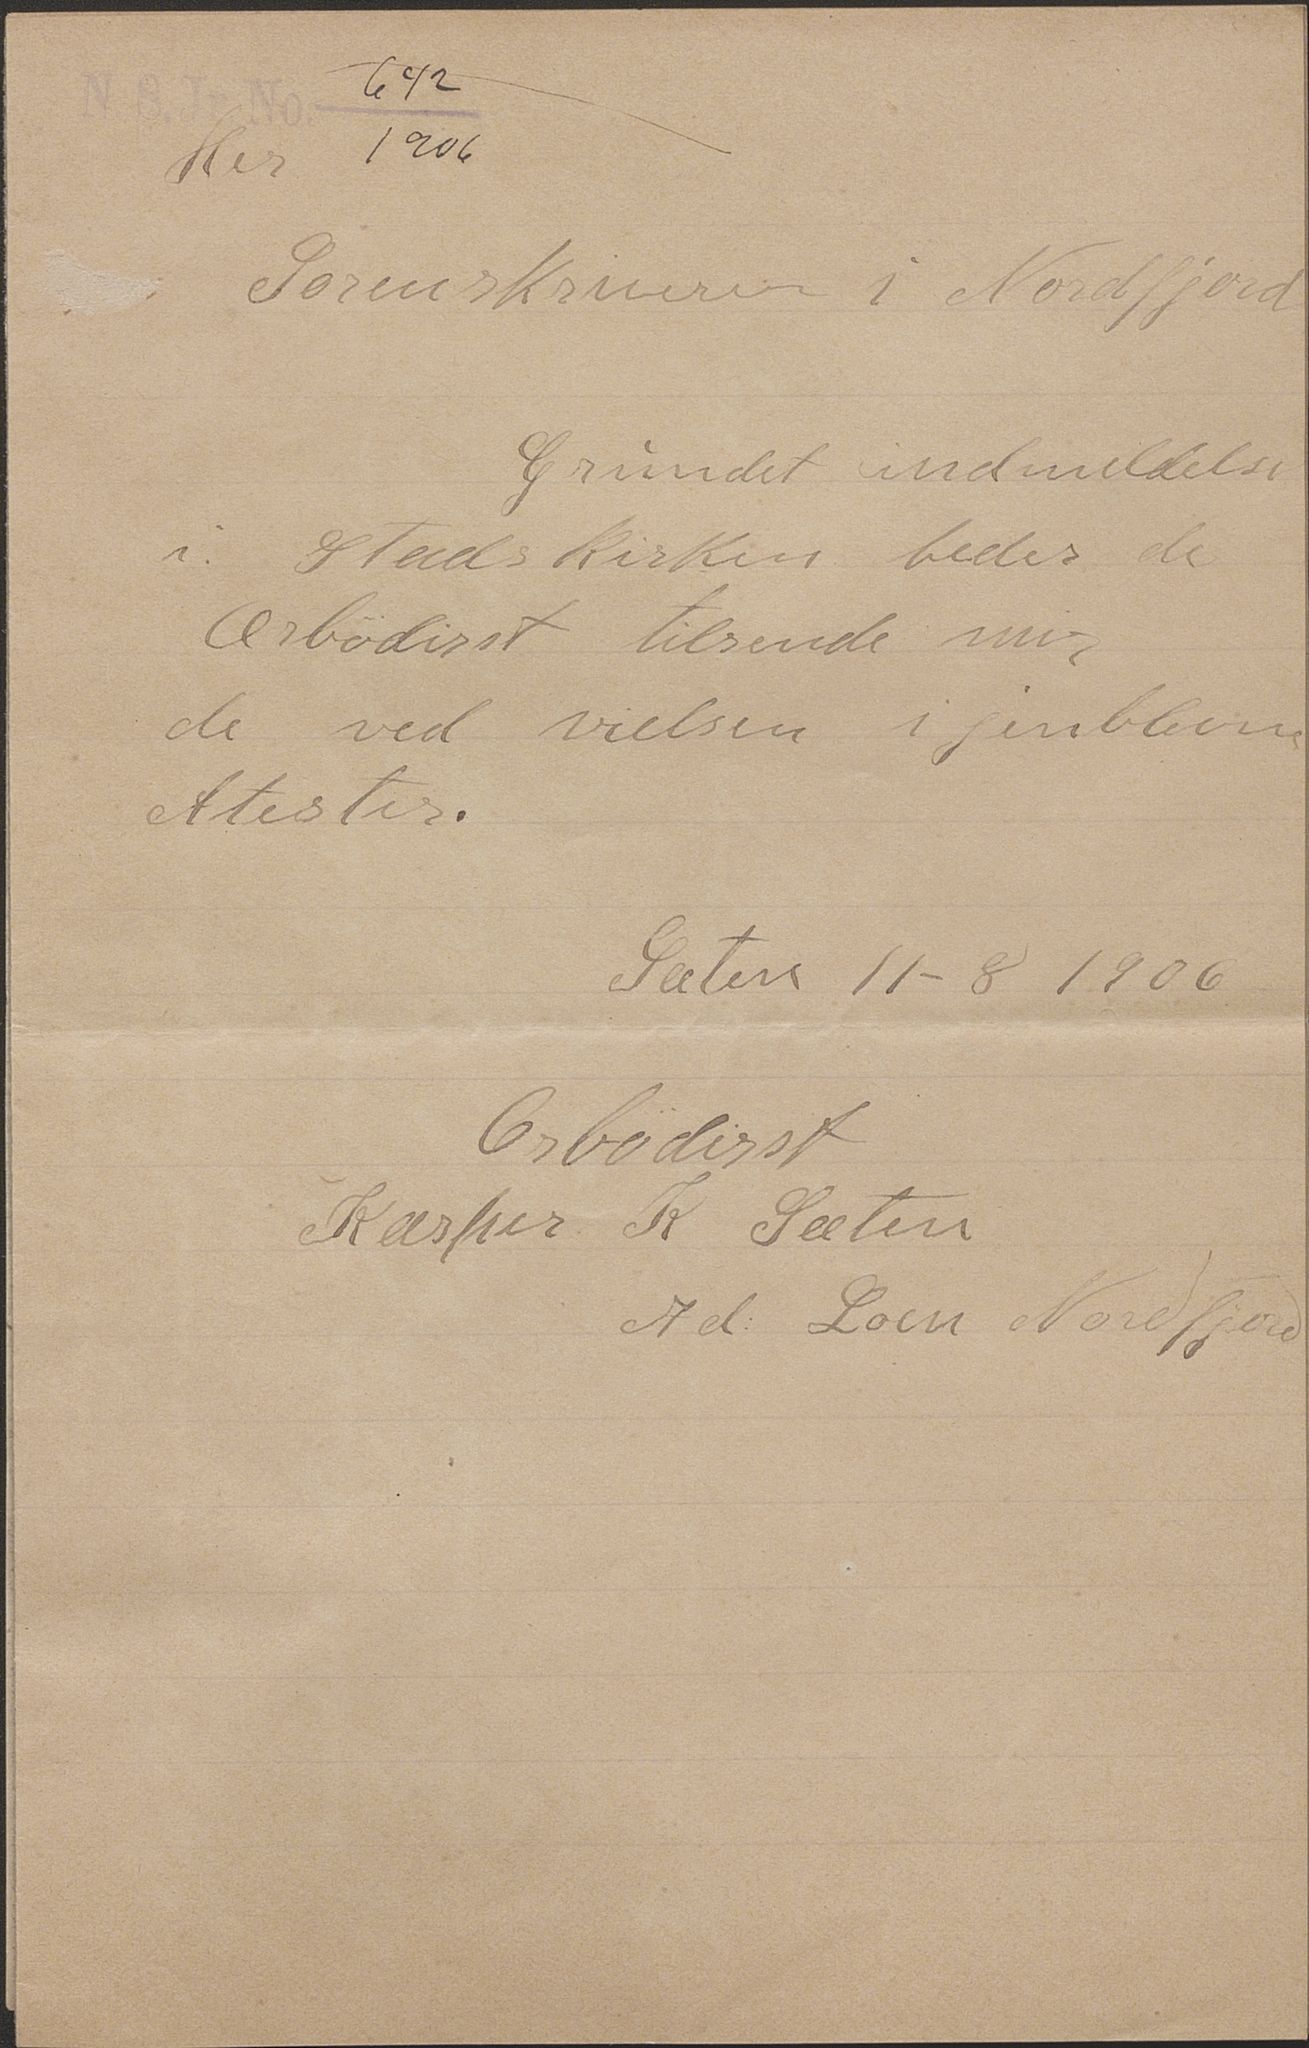 N. S. J- No. 642
1906
Her
Sorenskriveren i Nordfjord
Grundet indmeldelse
i. Stadskirken bedes de
Ærbödigst tilsende mig
de ved vielsen igjenblevne
Atester.
Sæten 11-8 1906
Erbödigst
Kasper K Sæten
Ad: Loen Nordfjord